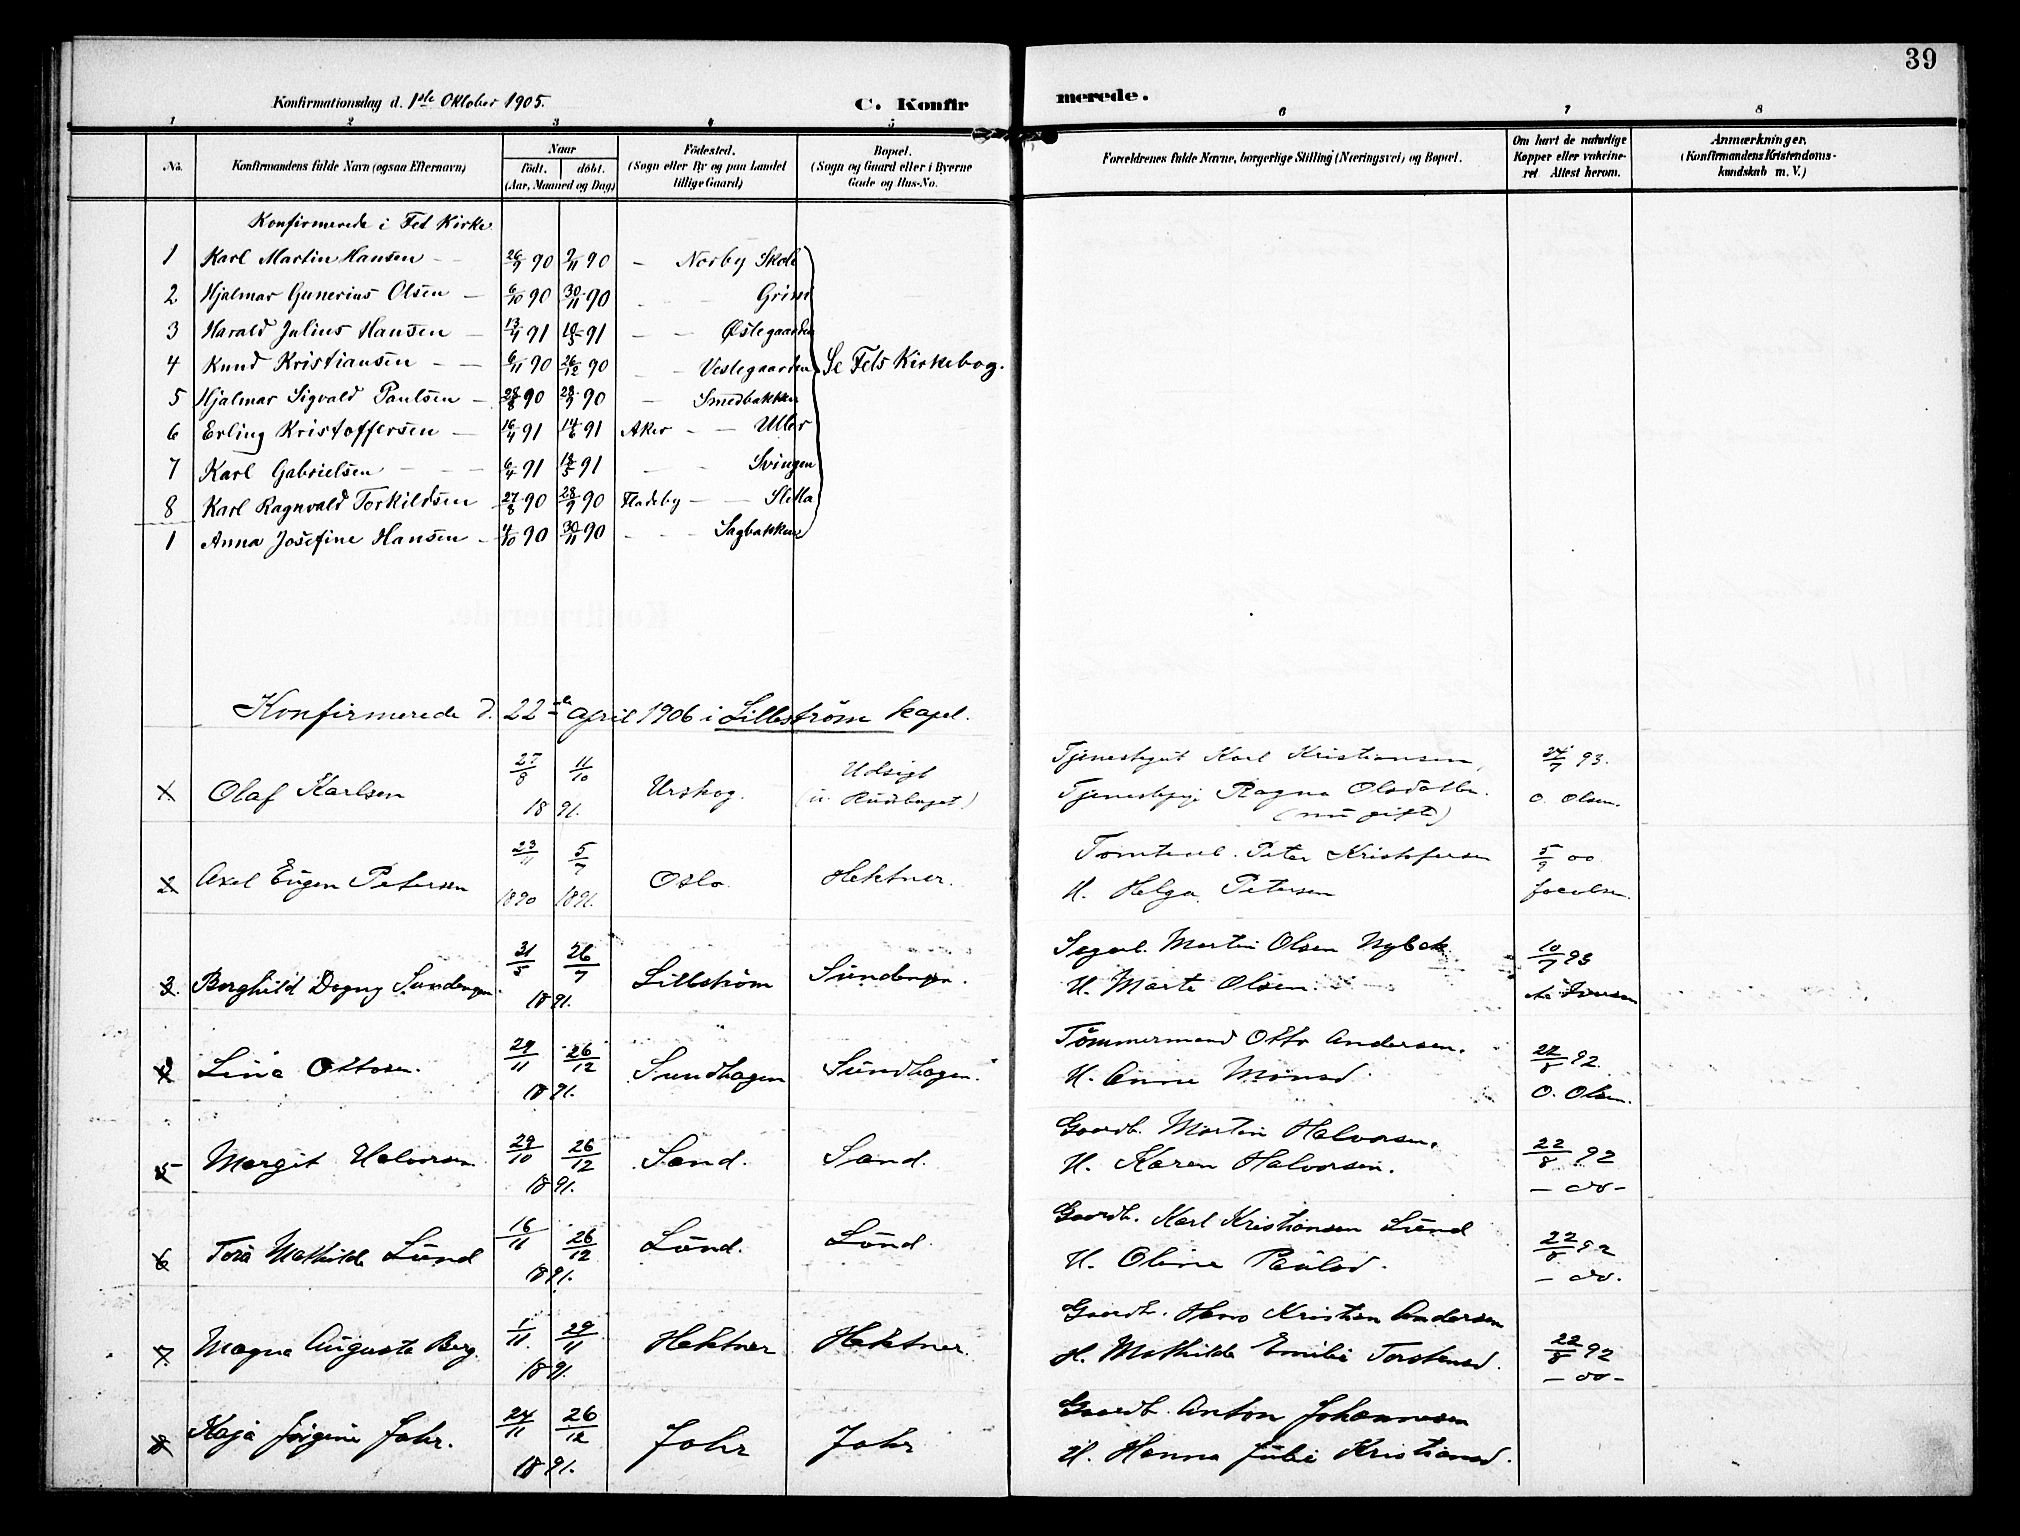 39
Konfirmationsdag d. 1ste Oktober 1905.
C. Konfirmerede.
1 2 3 4 5 6 7 8
No.
Konfirmandens fulde Navn (ogsaa Efternavn)
Naar
født. døbt.
(Aar, Maaned og Dag)
Fødested.
(Sogn eller By og paa Landet
tillige Gaard)
Bopæl.
(Sogn og Gaard eller i Byerne
Gade og Hus-No.
Forældrenes fulde Navne, borgerlige Stilling (Næringsvei) og Bopæl.
Om havt de naturlige
Kopper eller vakcine-
ret. Attest herom.
Anmærkninger.
(Konfirmandens Kristendoms-
kundskab m. V.)
Konfirmerede i Fet Kirke
1 Karl Martin Hansen 26/9 90 9/11 90 Norby Skole
2 Hjalmar Gunerius Olsen 6/10 90 30/11 90
3 Harald Julius Hansen 13/4 91 91 Østegaarden
4 Knud Kristiansen 6/11 90 26/12 90 Vestegaarden
Se Fets Kirkebog.
5 Hjalmar Sigvald Paulsen 28/8 90 28/9 90 Smedbakken
6 Erling Kristoffersen 16/4 91 14/6 91 Aker
7 Karl Gabrielsen 6/4 91 18/5 91 Svingen
8 Karl Ragnvald Torkildsen 27/8 90 28/9 90 Fladeby Sletta
1 Anna Josefine Hansen 4/10 90 30/11 90 Sagbakken
Konfirmerede d. 22de april 1906 i Lillestrøm kapel.
1 Olaf Karlsen 27/8 11/10 1891. Urskog. Udsigt
Tjenestegut Karl Kristiansen, 24/7 93.
Tjenestepige Ragna Olsdatter. O. Olsen.
(nu gift)
2 Axel Eugen Petersen 23/11 1890 5/7 1891. Oslo. Hektner.
Peter Kristofersen 5/9 00
H. Helga Petersen Jacobsen.
3. Borghild Dagny Sundengen 31/5 26/7 1891. Lillestrøm Sundengen.
Martin Olsen Nybak 10/7 93
H. Marte Olsen.
4 Lina Ottosen. 29/11 26/12 1891. Sundhagen Sundhagen.
Tömmermand Otto Andersen. 22/8 92.
H. Anne O. Olsen.
5 Margit Halvorsen 29/10 26/12 1891. Sand. Sand.
Gaardb. Martin Halvorsen. 22/8 92
H. Karen Halvorsen. – do –
6 Tora Mathilde Lund 16/11 26/12 1891. Lund. Lund.
Gaardb. Karl Kristiansen Lund 22/8 92
H. Oline Paulsd. – do.
7 Magna Augusta Berg. 1/11. 29/11 1891. Hektner Hektner.
Gaardb. Hans Kristian Andersen 22/8 92
H. Mathilde Emilie Torstensd. – do –
8 Kaja Jörgine Johr. 24/11 26/12 1891. Johr Johr
Gaardb. Anton Johannesen
H. Hanna Julie Kristiansd.